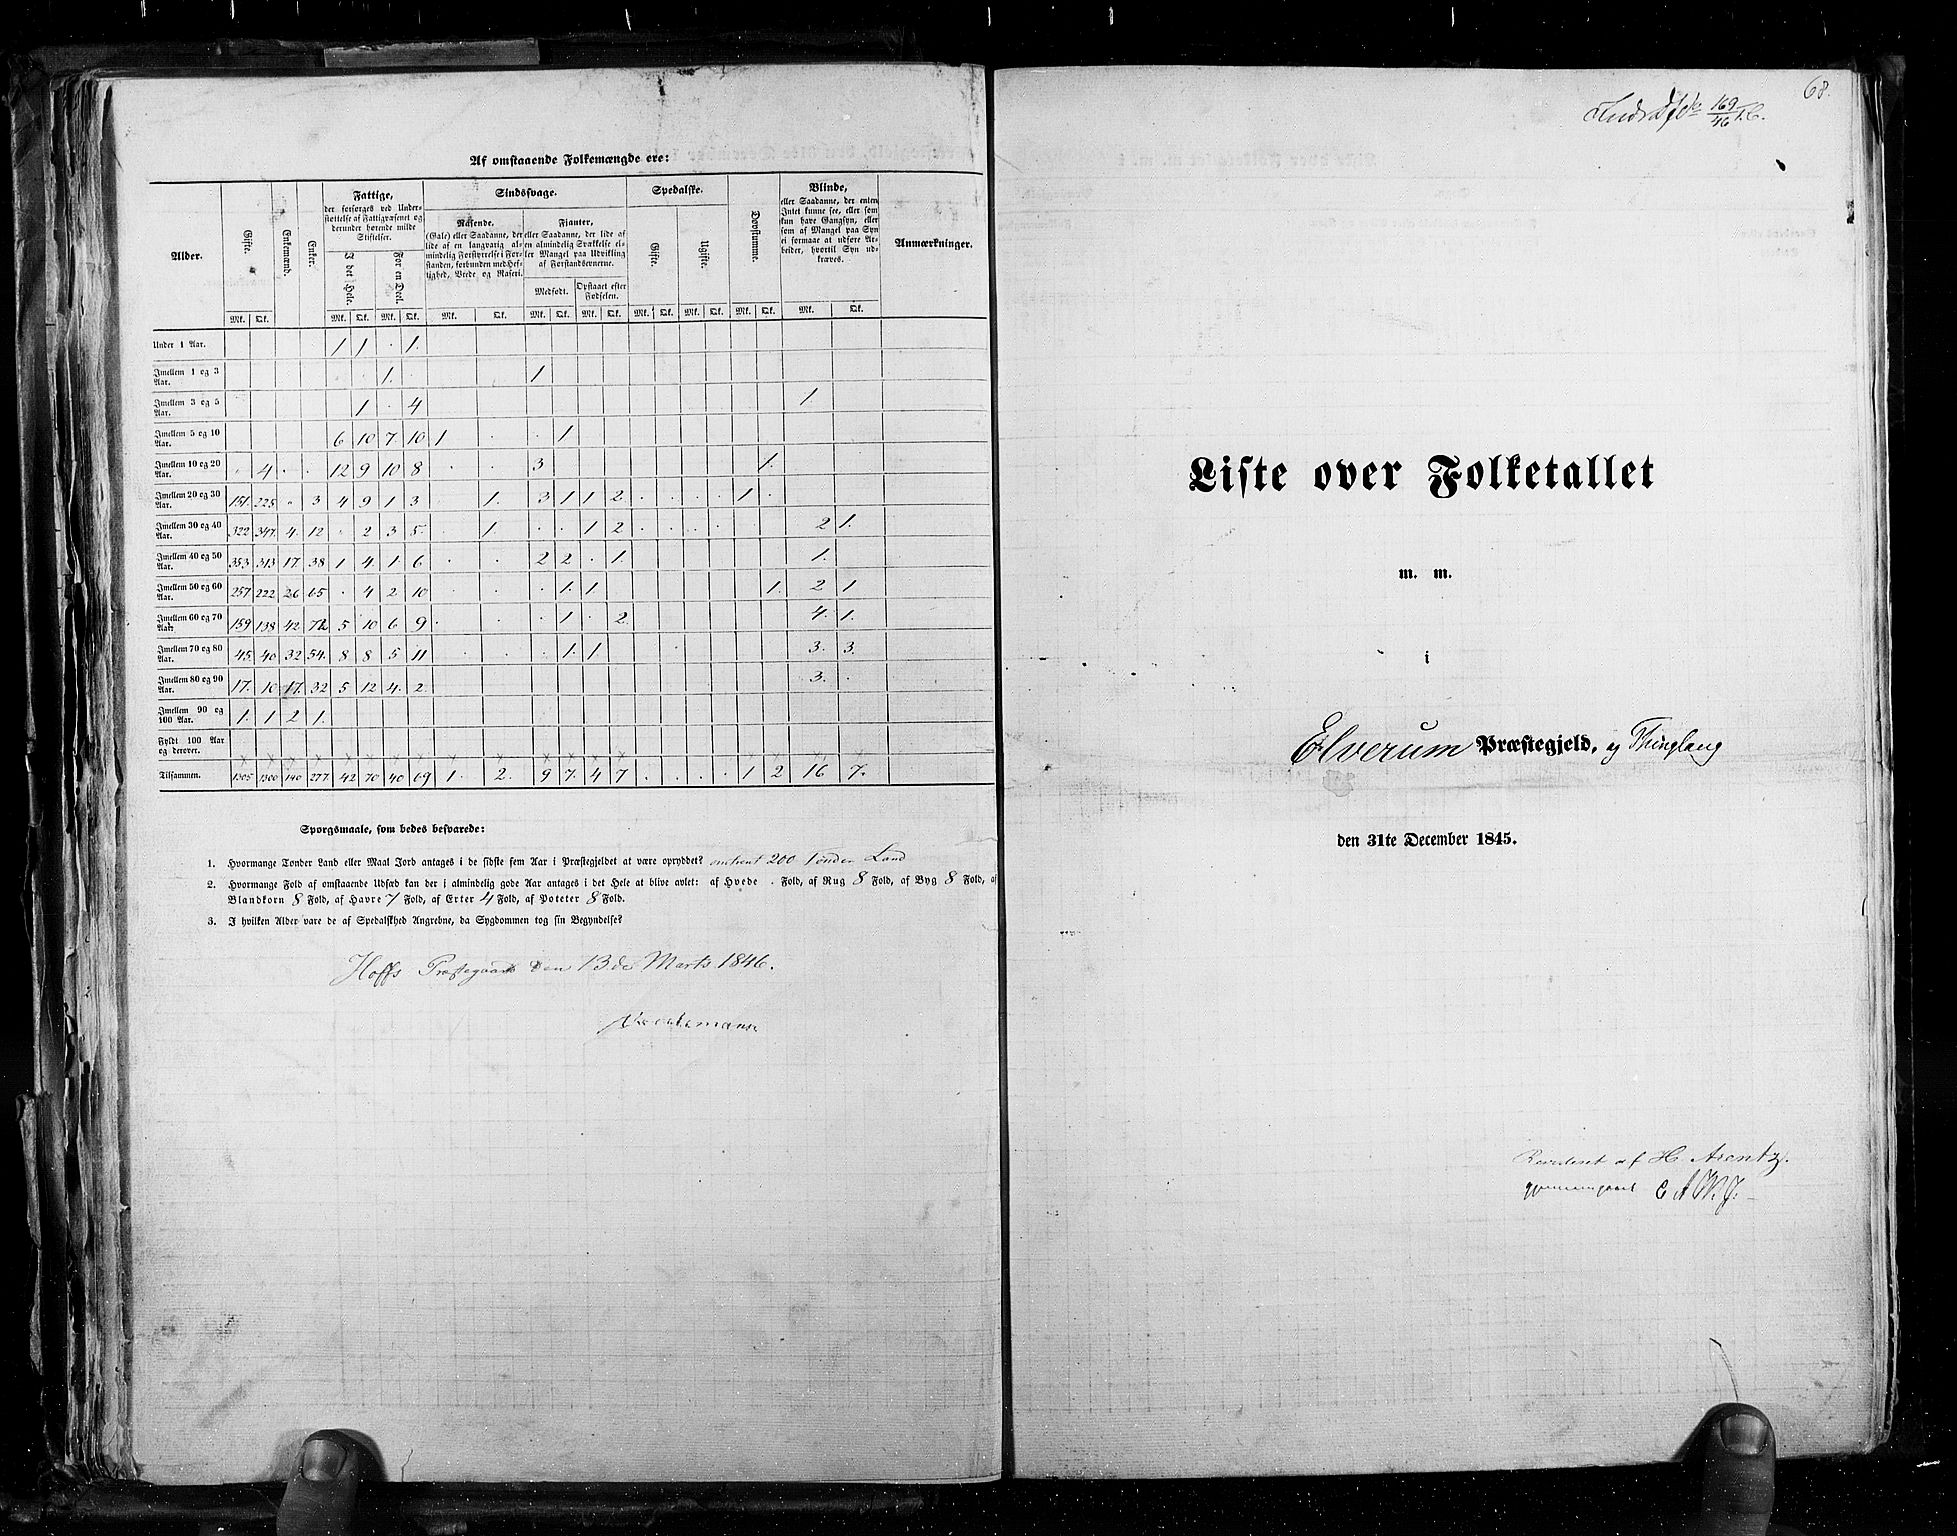 Af omstaaende Folkemængde ere:
Alder. Gifte. Enkemænd. Enker. Fattige, Sindssvage. Spedalske. Døvstumme. Blinde, Anmærkninger.
der forsørges ved Under-
støttelse af Fattigvæsenet og
derunder hørende milde
Stiftelser.
I det Hele. For en Deel.
Rasende.
(Gale) eller Saadanne, der
lide af en langvarig al-
mindelig Forstyrrelse i For-
standen, forbunden med Hef-
tighed, Vrede og Raseri.
Fjanter,
eller Saadanne, der lide af
en almindelig Svækkelse el-
ler Mangel paa Udvikling
af Forstandsevnerne.
Medfødt. Opstaaet efter Fødselen.
Gifte. Ugifte.
eller Saadanne, der enten
Intet kunne see, eller som
kun have Gangsyn, eller
som af Mangel paa Syn
ei formaae at udføre Ar-
beider, hvortil Syn ud-
kræves.
Mk. Qk. Mk. Qk. Mk. Qk. Mk. Qk. Mk. Qk. Mk. Qk. Mk. Qk. Mk. Qk. Mk. Qk. Mk. Qk.
Under 1 Aar. 1 1 . 1.
Imellem 1 og 3 Aar. . . 1. . 1
Imellem 3 og 5 Aar. 1 . 4 1.
Imellem 5 og 10 Aar. 6 10 7 10 1 . . 1
Imellem 10 og 20 Aar. . 4 . . 12 9 10 8 . . 3 1.
Imellem 20 og 30 Aar. 151. 225 " 3 4 9 1 3 . 1. 3 1 1 2 . . . . 1 .
Imellem 30 og 40 Aar. 322 347. 4. 12 . 2 3 5. . 1. . . 1 2 . . . . 2 1.
Imellem 40 og 50 Aar. 353 313 17. 38 1 4. 1. 6 . . 2 2 . 1. 1.
Imellem 50 og 60 Aar. 257 222 26 65 . 4 2 10 . . . 1. 1 1. 2 1
Imellem 60 og 70 Aar. 159 138 42 72 5 10 6 9 . . . 1 . 2. 4. 1.
Imellem 70 og 80 Aar. 45. 40 32 54. 8 8 5 11 . . . 1. 1 3. 3.
Imellem 80 og 90 Aar. 17. 10 17. 32 5 12 4. 2. 3. .
Imellem 90 og 100 Aar. 1. 1 2 1.
Fyldt 100 Aar og derover.
Tilsammen. 1305 1300 140 277. 42 70 40 69 1. 2. 9 7. 4 7 . . . . 1 2 16 7.
Spørgsmaale, som bedes besvarede:
1. Hvormange Tønder Land eller Maal Jord antages i de sidste fem Aar i Præstegjeldet at være opryddet? omtrent 200 Tønder Land
2. Hvormange Fold af omstaaende Udsæd kan der i almindelig gode Aar antages i det Hele at blive avlet: af Hvede . Fold, af Rug 8 Fold, af Byg 8 Fold, af
Blandkorn 8 Fold, af Havre 7 Fold, af Erter 4 Fold, af Poteter 8 Fold.
3. I hvilken Alder vare de af Spedalskhed Angrebne, da Sygdommen tog sin Begyndelse?
Hoffs Præstegaard den 13de Marts 1846.
68.
169/46
Liste over Folketallet
m. m.
i
Elverum Præstegjeld, og Thinglaug
den 31te December 1845.
Revideret af H. Arentz.
gjennemgaaet